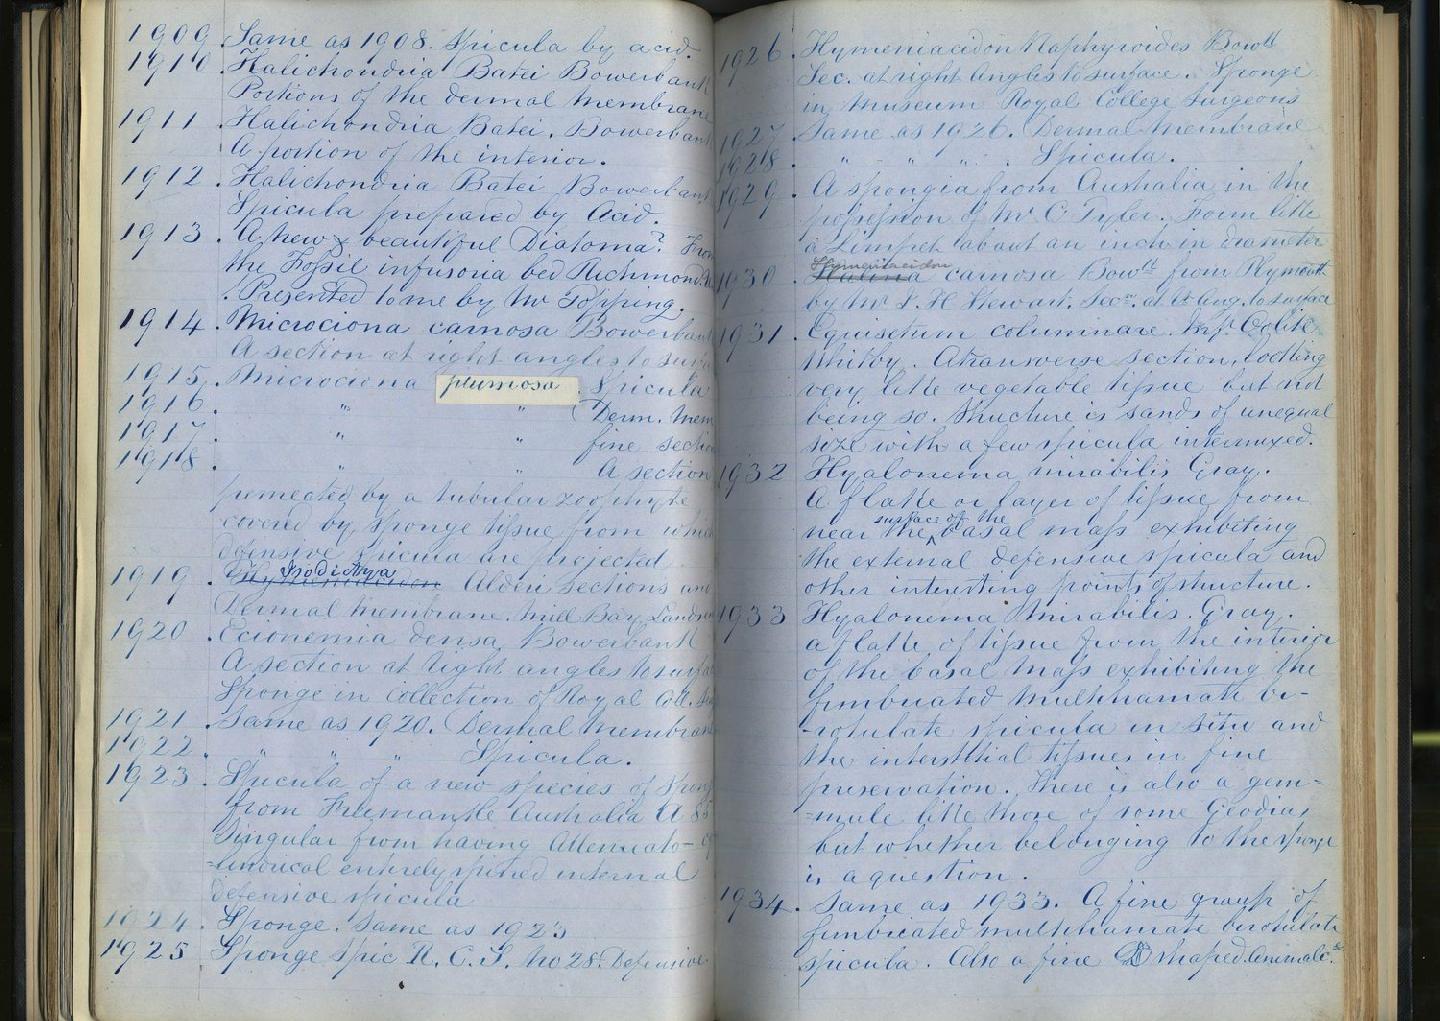 1909. Same as 1908. Spicula by acid.
1910 Halichondria Batei Bowerbank
Portions of the dermal membrane
1911 . Halichondria Batei. Bowerbank
A portion of the interior.
1912 . Halichondria Batei Bowerbank
Spicula prepared by Acid.
1913 . A new & beautiful Diatoma? From
the Fossil infusoria bed Richmond.
Presented to me by Mr Topping.
1914 . Microciona carnosa Bowerbank
A section at right angles to surface
1915. Microciona plumosa Spicula
1916 " " Derm. Mem
1917 . " " fine section
1918. " " A section
permeated by a tubular zoophyte
covered by sponge tissue from which
defensive spicula are projected
1919 . Isodictya Alderi Sections and
Dermal Membrane. Mill Bay, Lands
1920 . Ecionemia densa Bowerbank
A section at right angles to surface
Sponge in Collection of Royal Coll.
1921 . Same as 1920. Dermal membrane
1922 . " " Spicula.
1923 . Spicula of a new species of Spong
from Freemantle Australia A 85
Singular from having Attenuato-
=lindrical entirely spined internal
defensive spicula
1924 . Sponge. Same as 1923
1925 Sponge Spic R. C. S. No 28. Defensive
1926. Hymeniacidon Naphyroides Bowk
Sec. at right Angles to surface. Sponge
in Museum Royal College Surgeons
1927. Same as 1926. Dermal Membrane
1928. " " " " Spicula.
1929. A spongia from Australia in the
possession of Mr C. Tyler. Form like
a Limpet about an inch in diameter
1930 Hymeniacidon carnosa Bowk from Plymouth
by Mr Stewart. Secn. at rt Ang. to surface
1931 . Equisetum columnare. Inf. Oolite
Whitby. A tranverse section, looking
very like vegetable tissue but not
being so. Structure is sands of unequal
size with a few spicula intermixed.
1932 Hyalonema mirabilis Gray.
A flake or layer of tissue from
near the surface of the basal mass exhibiting
the external defensive spicula and
other interesting points of structure.
1933 Hyalonema Mirabilis. Gray.
a flake of tissue from the interior
of the basal mass exhibiting the
fimbriated multihamate bi-
-rotulate spicula in situ and
the interstitial tissues in fine
preservation. There is also a gem-
=mule like those of some Geodias
but whether belonging to the sponge
is a question.
1934. Same as 1933. A fine group of
fimbricated multihamate birotulate
spicula. Also a fine shaped Animalc.